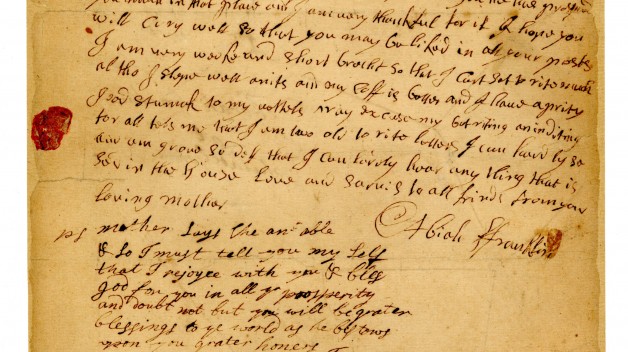 in that place and I am very thankful for it I hope you
will Cary well so that you may be liked in all your postes
I am very weeke and short bretht so that I Cant set to rite much
al tho I slepe well anits and my Coff is better and I have a prity
good stumuk to my vettels pray excuse my bad riting and inditing
for all tels me that I am two old to rite letters I can hardly se
and am grone so deff that I can hardly hear any thing that is
sed in the house Love and sarvis to all frinds from your
loving mother
Abiah Franklin
ps mother says she an't able
& so I must tell you my self
that I rejoyce with you & bles
god for you in all yr prosperity
and doubt not but you will be grater
blessings to ye world as he bestows
upon you grater honers